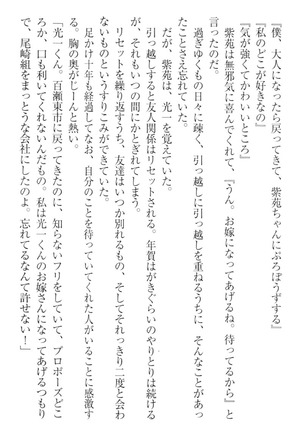 『僕、大人になったら戻ってきて、紫苑ちゃんにぷろぽうずする』
『私のどこが好きなの』
『気が強くてかわいいところ』
紫苑は無邪気に喜んでくれて、『うん。お嫁になってあげるね。待ってるから』と
言ったのだ。
過ぎゆくもの日々に疎く、引っ越しに引っ越しを重ねるうちに、そんなことがあっ
たことさえ忘れていた。
だが、紫苑は、光一を覚えていた。
引っ越しすると友人関係はリセットされる。年賀はがきぐらいのやりとりは続ける
ものの、それもいつの間にかとぎれてしまう。
リセットを繰り返すうち、友達はいつか別れるもの、そしてそれっきり二度と会わ
ないものというすりこみができていた。
足かけ十年も経過してなお、自分のことを待っていてくれた人がいることに感激す
る。胸の奥がじーんと熱い。
「光一くん。百瀬東市に戻ってきたのに、知らないフリをしていて、プロポーズどこ
ろか、口も利いてくれないんだもの。私は光一くんのお嫁さんになってあげるつもり
で、尾崎組をまっとうな会社にしたのよ。忘れてるなんて許せない！」